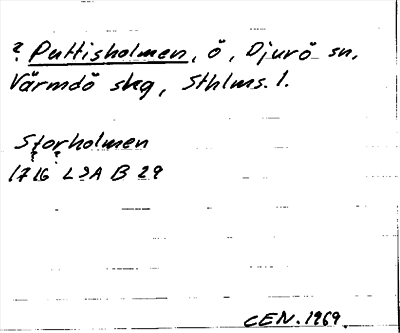 ? Puttisholmen, ö, Djurö sn,
Värmdö skg, Sthlms. l.
Storholmen
? ?
1716 LSA B 29
CEN. 1969.